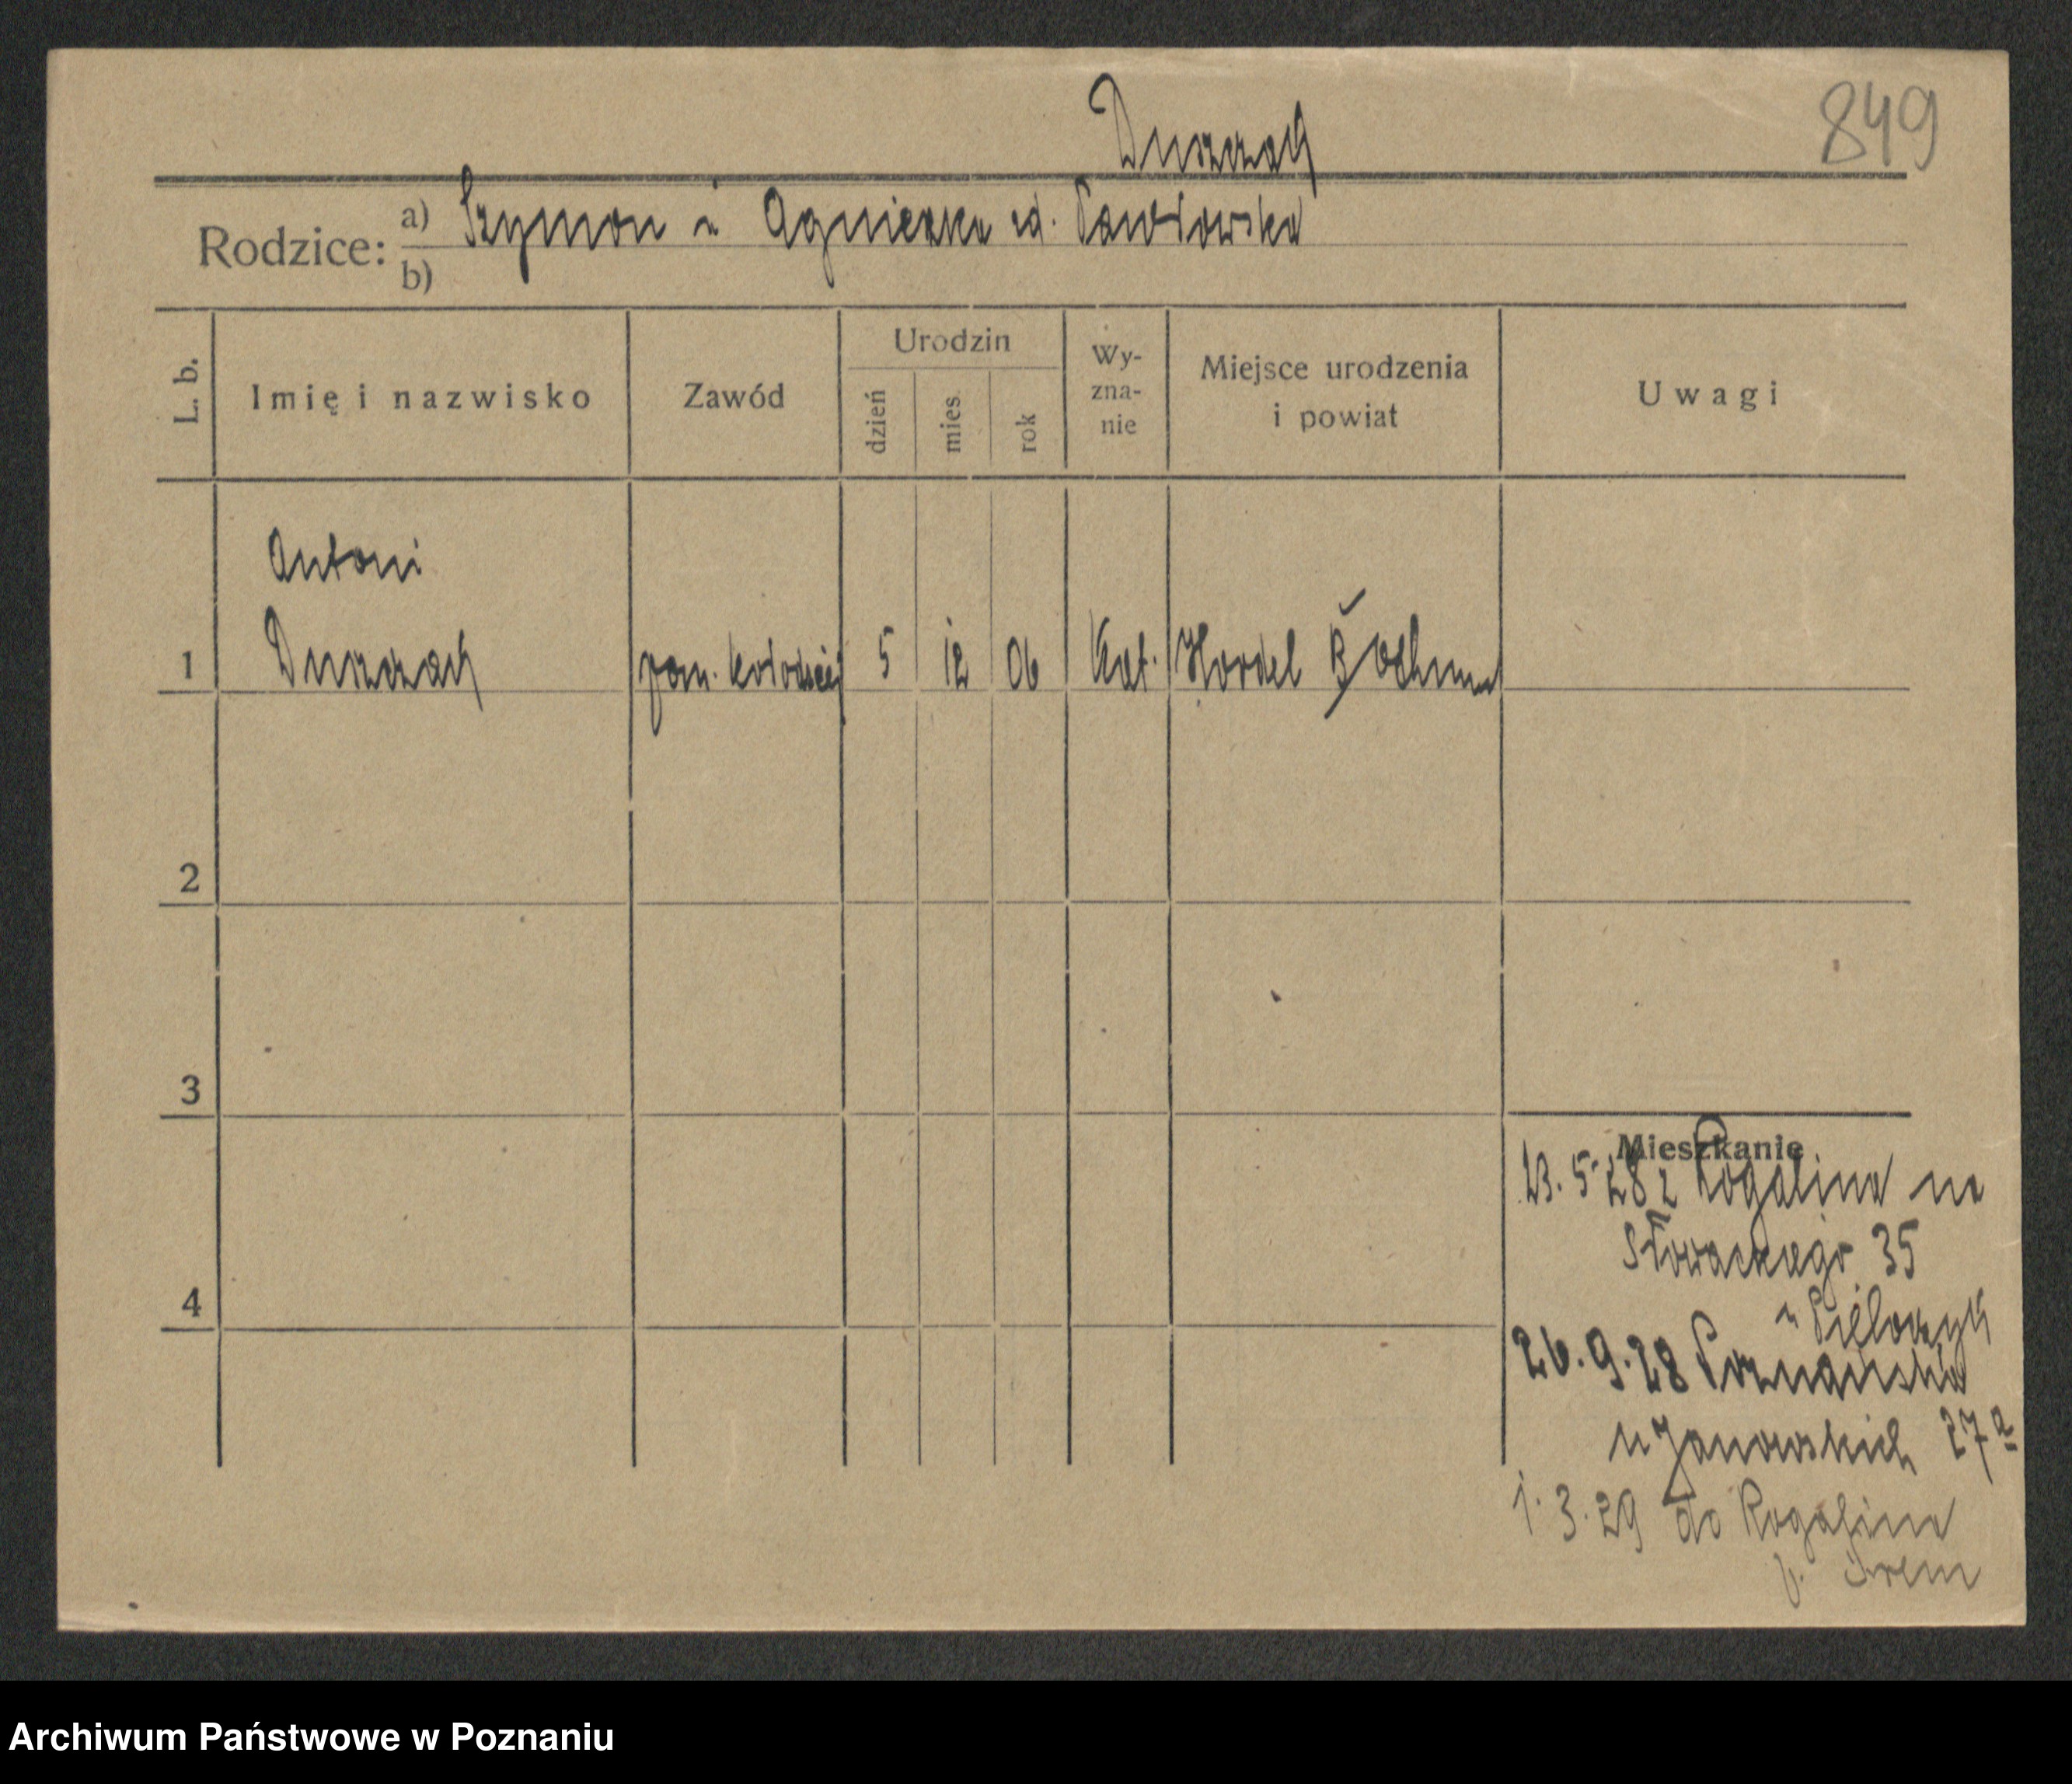 849
Duszczak
Rodzice: a) Szymon i Agnieszka zd. Pawłowska
b)
L. b. Imię i nazwisko Zawód Urodzin dzień mies. rok Wy-zna-nie Miejsce urodzenia i powiat Uwagi
Antoni
1 Duszczak pom. kołodziej 5 12 06 Kat. Hordel Bochum
2
3
4
Mieszkanie
5. 28 z Rogalina na
Słowackiego 35
u
26. 9. 28 Poznańska
u Janowskich 27a
1. 3. 29 do Rogalina
Śrem
Archiwum Państwowe w Poznaniu